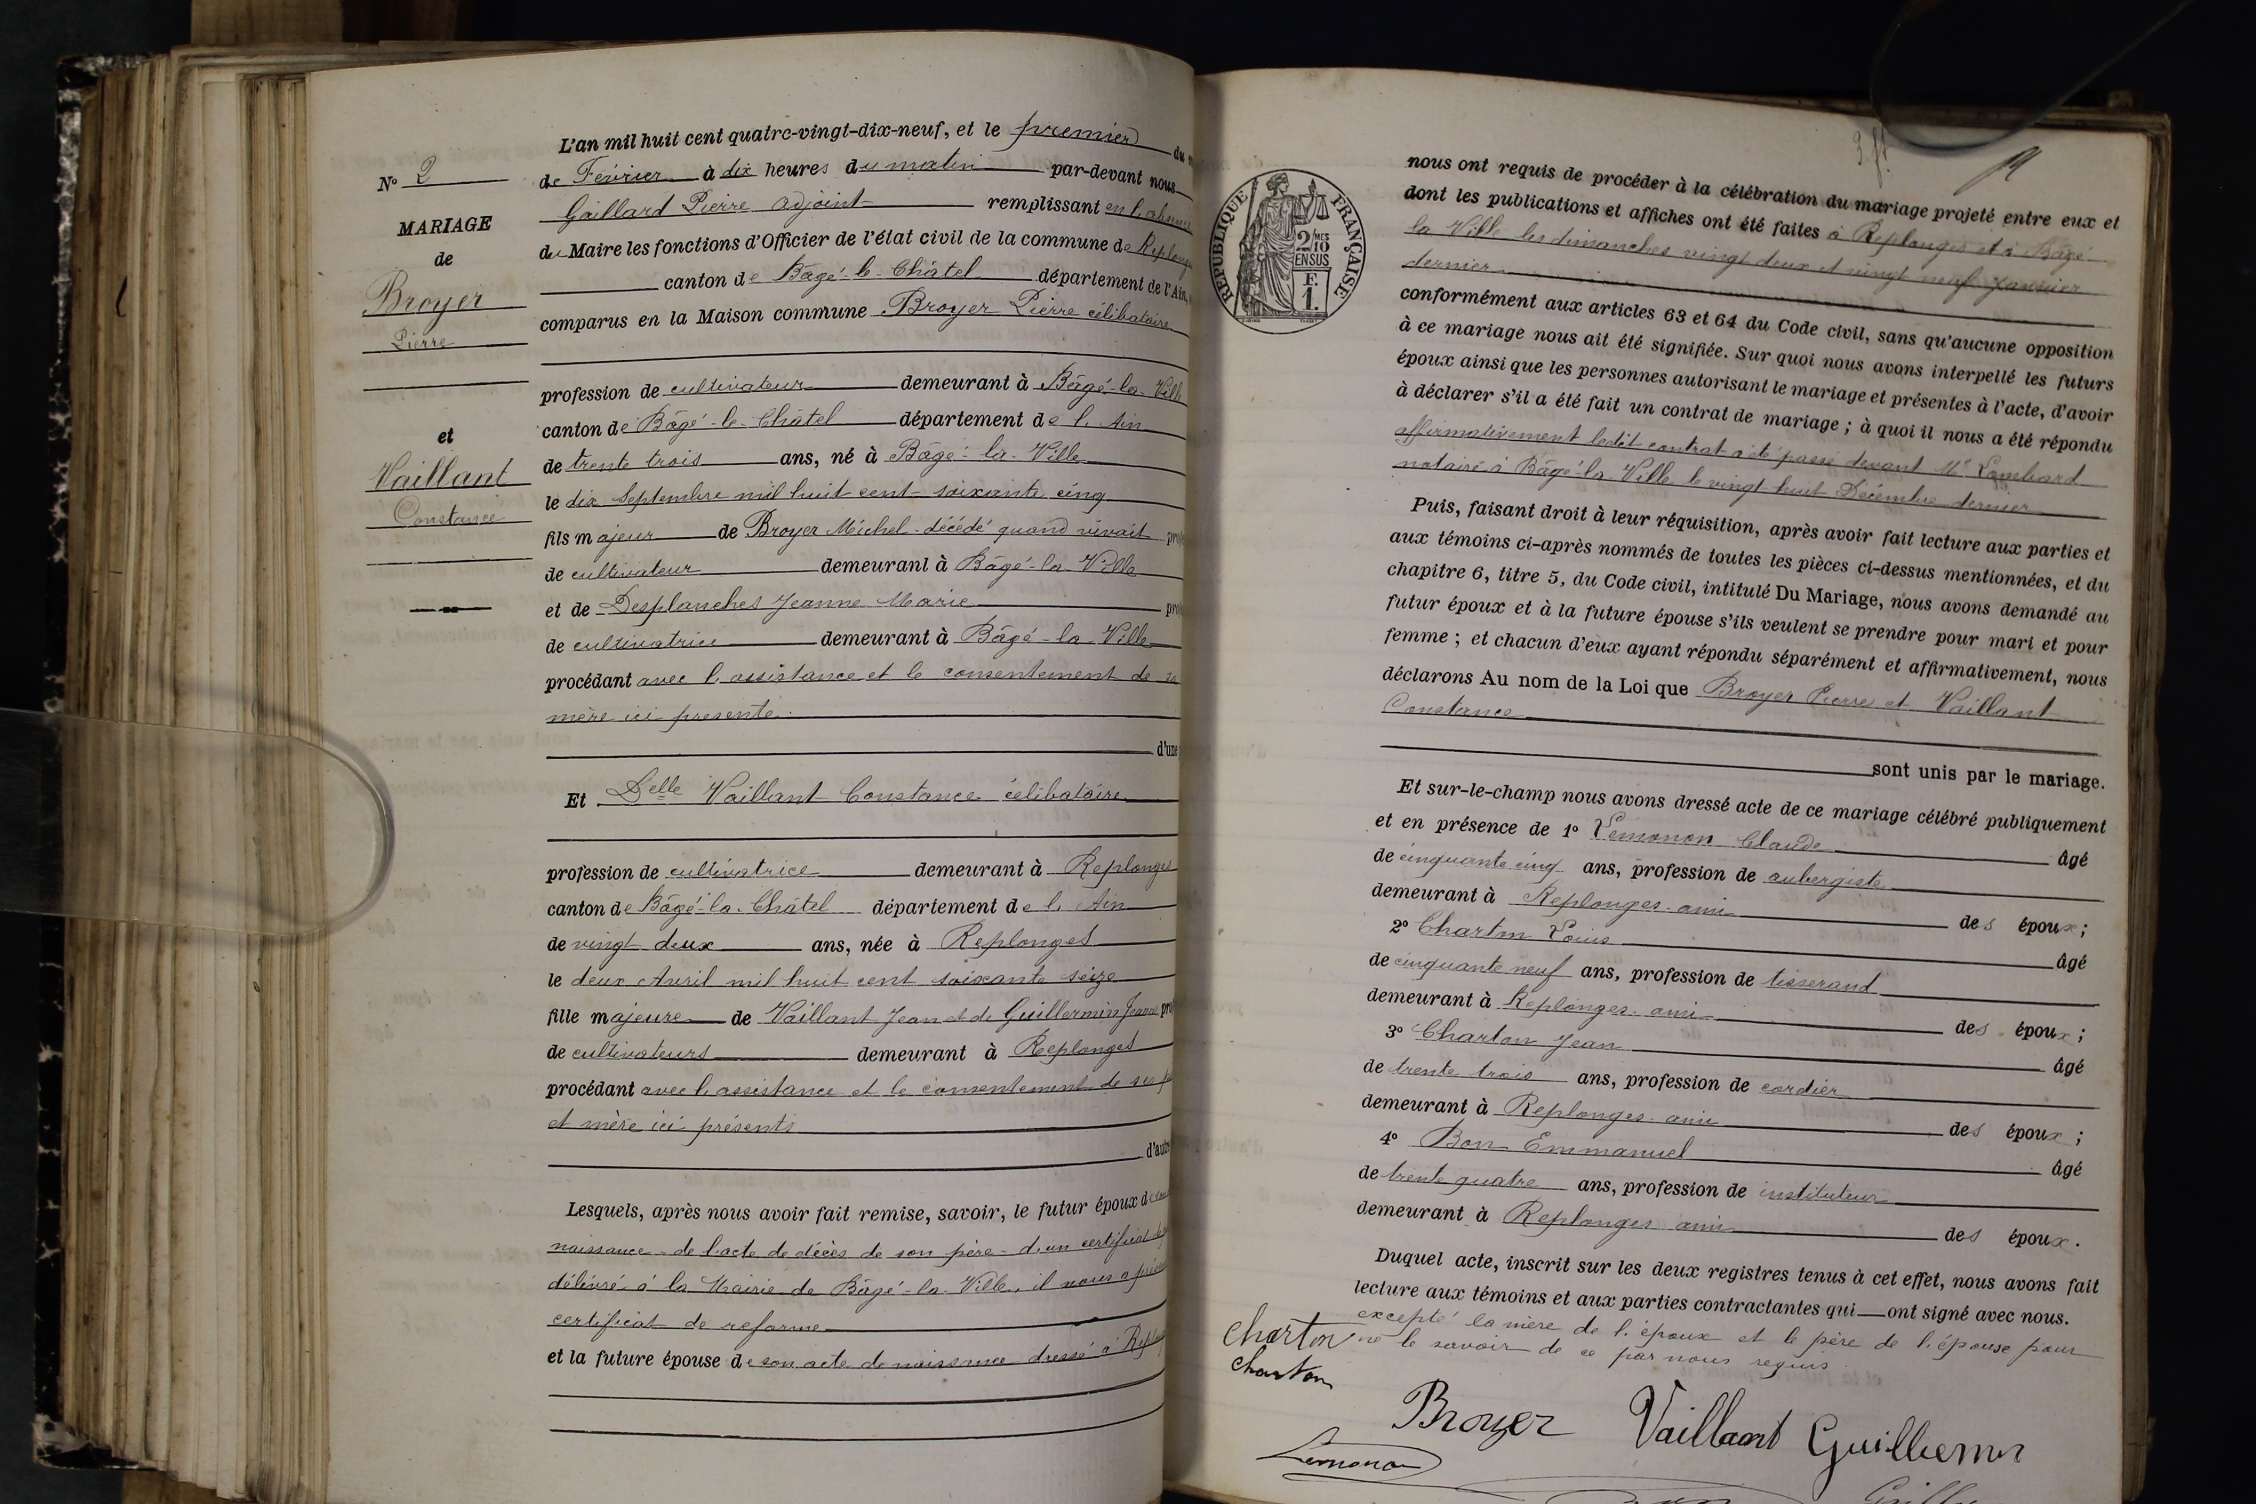 L'an mil huit cent quatre-vingt-dix-neuf, et le premier du
N° 2
de Février à dix heures du matin par-devant nous
Gaillard Pierre adjoint remplissant en l'absence
MARIAGE
du Maire les fonctions d'Officier de l'état civil de la commune de Replonges
de
canton de Bâgé-le-Châtel département de l'Ain,
Broyer
comparus en la Maison commune Broyer Pierre célibataire
Pierre
profession de cultivateur demeurant à Bâgé-la-Ville
canton de Bâgé-le-Châtel département de l'Ain
et
de trente trois ans, né à Bâgé-la-Ville
Vaillant
le dix Septembre mil huit cent soixante cinq
Constance
fils majeur de Broyer Michel décédé quand vivait
de cultivateur demeurant à Bâgé-la-Ville
et de Desplanches Jeanne Marie
de cultivatrice demeurant à Bâgé-la-Ville
procédant avec l'assistance et le consentement de sa
mère ici présente
d'une
Et Delle Vaillant Constance célibataire
profession de cultivatrice demeurant à Replonges
canton de Bâgé-le-Châtel département de l'Ain
de vingt deux ans, née à Replonges
le deux Avril mil huit cent soixante seize
fille majeure de Vaillant Jean et de Guillermin Jeanne
de cultivateurs demeurant à Replonges
procédant avec l'assistance et le consentement de ses
et mère ici présents
d'autre
Lesquels, après nous avoir fait remise, savoir, le futur époux de
naissance de l'acte de décès de son père d'un certificat
délivré à la Mairie de Bâgé-la-Ville, il nous a
certificat de reforme
et la future épouse de son acte de naissance dressé à Replonges
9
RÉPUBLIQUE FRANÇAISE
2/10 MES
EN SUS
E.
1.
nous ont requis de procéder à la célébration du mariage projeté entre eux et
dont les publications et affiches ont été faites à Replonges et à Bâgé
la Ville les dimanches vingt deux et vingt neuf Janvier
dernier
conformément aux articles 63 et 64 du Code civil, sans qu'aucune opposition
à ce mariage nous ait été signifiée. Sur quoi nous avons interpellé les futurs
époux ainsi que les personnes autorisant le mariage et présentes à l'acte, d'avoir
à déclarer s'il a été fait un contrat de mariage ; à quoi il nous a été répondu
affirmativement ledit contrat a été passé devant Me Lombard
notaire à Bâgé-la-Ville le vingt huit Décembre dernier
Puis, faisant droit à leur réquisition, après avoir fait lecture aux parties et
aux témoins ci-après nommés de toutes les pièces ci-dessus mentionnées, et du
chapitre 6, titre 5, du Code civil, intitulé Du Mariage, nous avons demandé au
futur époux et à la future épouse s'ils veulent se prendre pour mari et pour
femme ; et chacun d'eux ayant répondu séparément et affirmativement, nous
déclarons Au nom de la Loi que Broyer Pierre et Vaillant
Constance
sont unis par le mariage.
Et sur-le-champ nous avons dressé acte de ce mariage célébré publiquement
et en présence de 1° Lemonon Claude âgé
de cinquante cinq ans, profession de aubergiste
demeurant à Replonges ami des époux ;
2° Charton Louis âgé
de cinquante neuf ans, profession de tisserand
demeurant à Replonges ami des époux ;
3° Charton Jean âgé
de trente trois ans, profession de cordier
demeurant à Replonges ami des époux ;
4° Bon Emmanuel âgé
de trente quatre ans, profession de instituteur
demeurant à Replonges ami des époux.
Duquel acte, inscrit sur les deux registres tenus à cet effet, nous avons fait
lecture aux témoins et aux parties contractantes qui ont signé avec nous.
excepté la mère de l'époux et le père de l'épouse pour
ne le savoir de ce par nous requis
Charton
Charton
Broyer Vaillant Guillermin
Lemonon